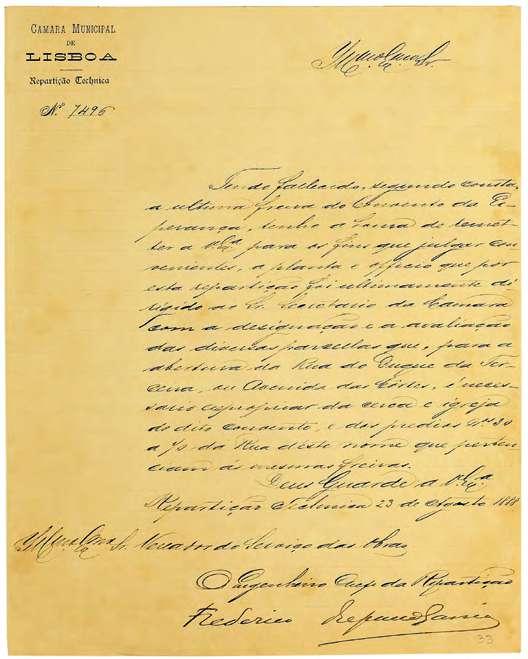 CAMARA MUNICIPAL
DE
LISBOA
Repartição Technica
Nº 7496
Illmo Exmo Sr.
Tendo fallecido, segundo consta,
a ultima freira do Convento da Es-
perança, tenho a honra de remet-
ter a V. Exª para os fins que julgar con-
venientes, a planta e officio que por
esta repartição foi ultimamente di-
rigido ao Sr. Secretario da Camara
com a designação e a avaliação
das diversas parcellas que, para a
abertura da Rua do Duque da Ter-
ceira, ou Avenida das Côrtes, é neces-
sario expropriar da cerca e igreja
do dito convento, e dos predios nos 30
a 70 da Rua deste nome que perten-
ciam ás mesmas freiras.
Deus Guarde a V. Exª
Repartição Technica 23 de Agosto 1888
Illmo Exmo Sr. Vereador do Serviço das Obras
O Engenheiro Chefe da Repartição
Frederico Ressano Garcia
33